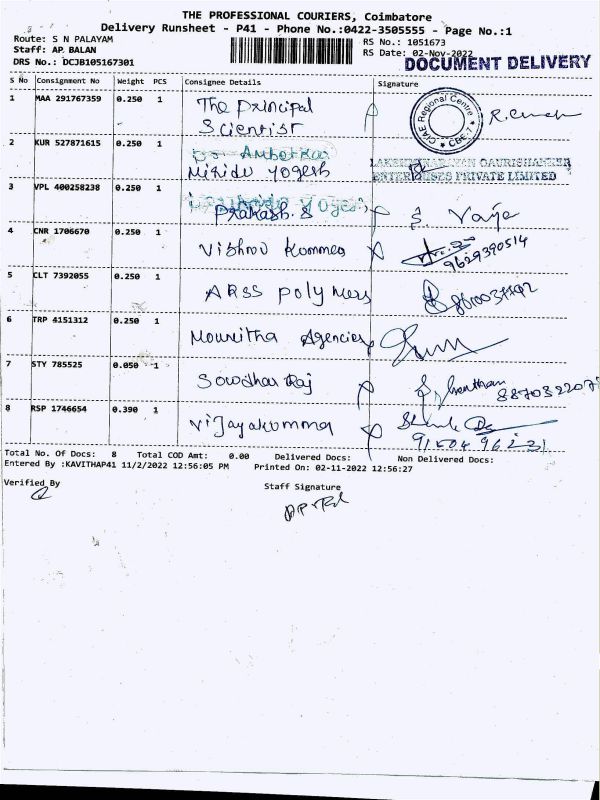 THE PROFESSIONAL COURIERS, Coimbatore
Delivery Runsheet - P41 - Phone No.:0422-3505555 - Page No.:1
Route: S N PALAYAM
RS No.: 1051673
Staff: AP. BALAN
RS Date: 02-Nov-2022
DRS No.: DCJB105167301
DOCUMENT DELIVERY
S No Consignment No Weight PCS Consignee Details Signature
1 MAA 291767359 0.250 1 The principal
Scientist
CIAE Regional Centre
CBE-7
2 KUR 527871615 0.250 1
yogesh
ENTERPRISES PRIVATE LIMITED
3 VPL 400258238 0.250 1 Prakash. S
4 CNR 1706670 0.250 1 Vishnu
9629390514
5 CLT 7392055 0.250 1 ARSS polymers
6 TRP 4151312 0.250 1 Mounitha Agencies
7 STY 785525 0.050 1 Sowdhar Raj
8 RSP 1746654 0.390 1 Vijayakumma
Total No. Of Docs: 8 Total COD Amt: 0.00 Delivered Docs: Non Delivered Docs:
Entered By :KAVITHAP41 11/2/2022 12:56:05 PM Printed On: 02-11-2022 12:56:27
Verified By
Staff Signature